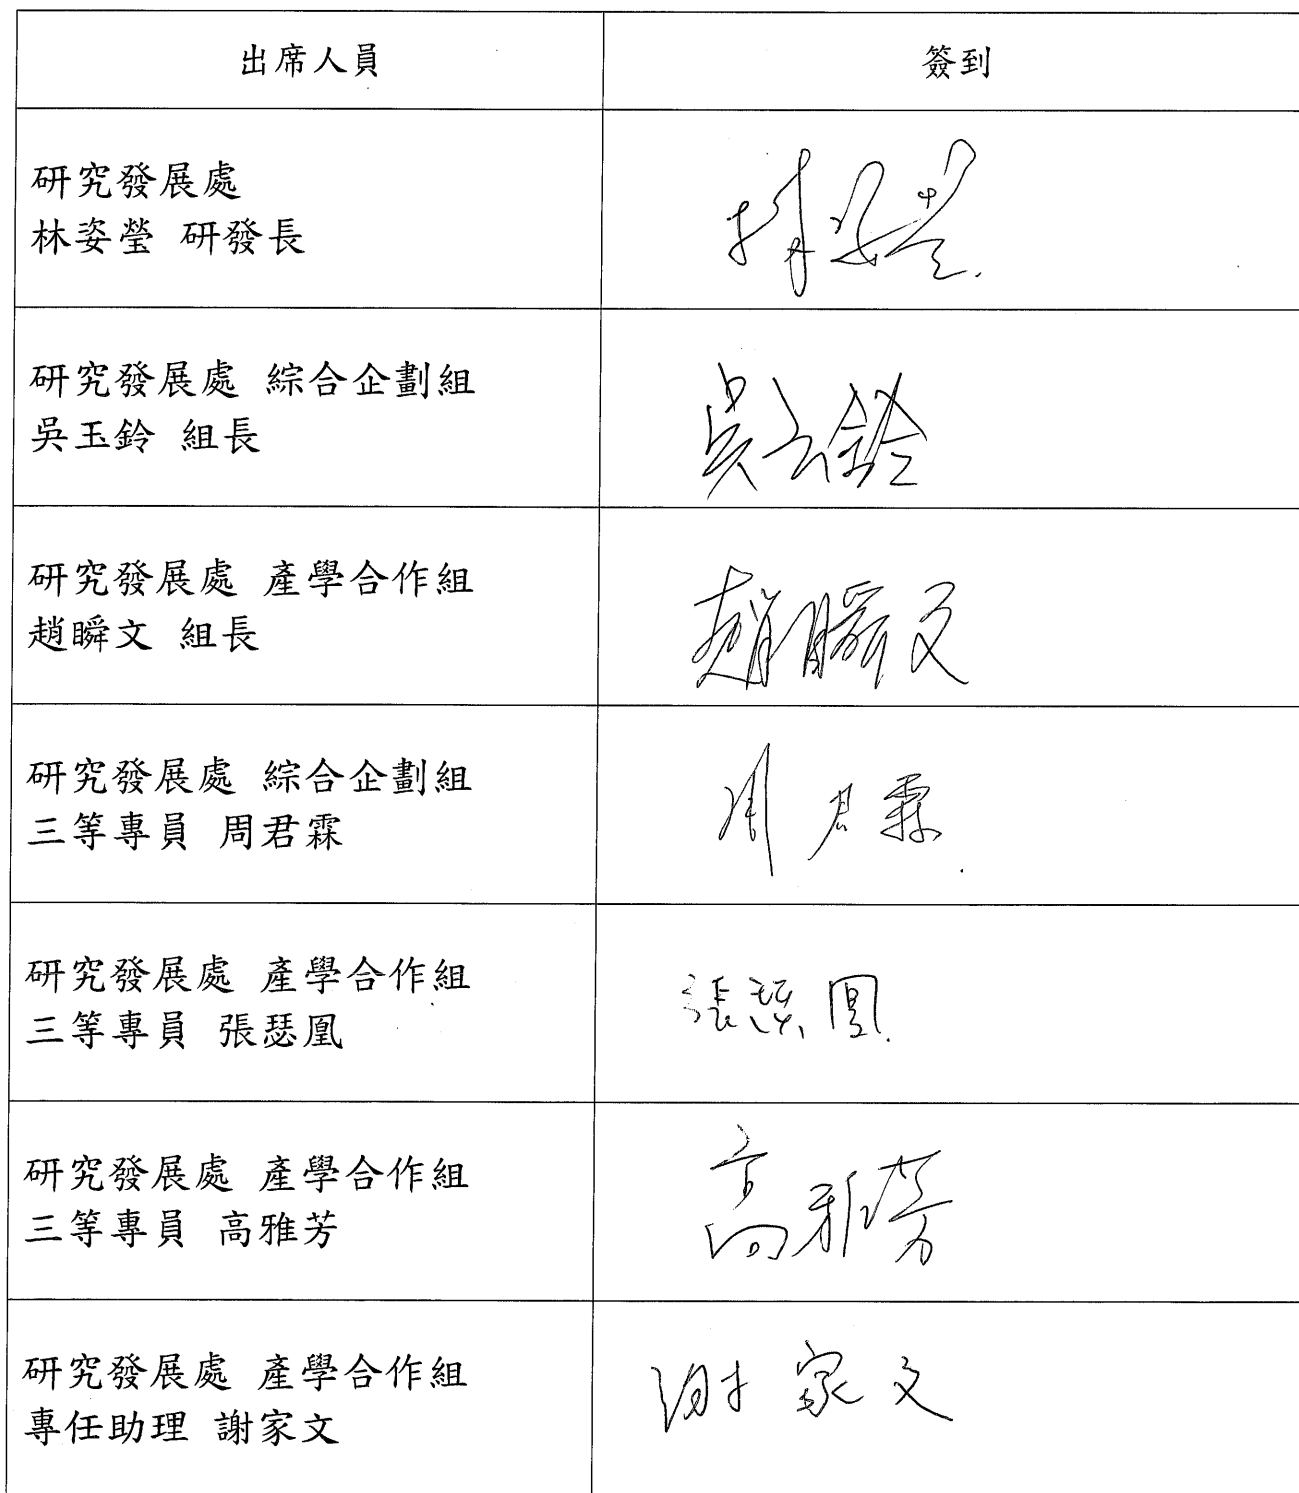 出席人員
簽到
研究發展處
林姿瑩 研發長
林姿瑩
研究發展處 綜合企劃組
吳玉鈴 組長
吳玉鈴
研究發展處 產學合作組
趙瞬文 組長
趙瞬文
研究發展處 綜合企劃組
三等專員 周君霖
周君霖
研究發展處 產學合作組
三等專員 張瑟凰
張瑟凰
研究發展處 產學合作組
三等專員 高雅芳
高雅芳
研究發展處 產學合作組
專任助理 謝家文
謝家文